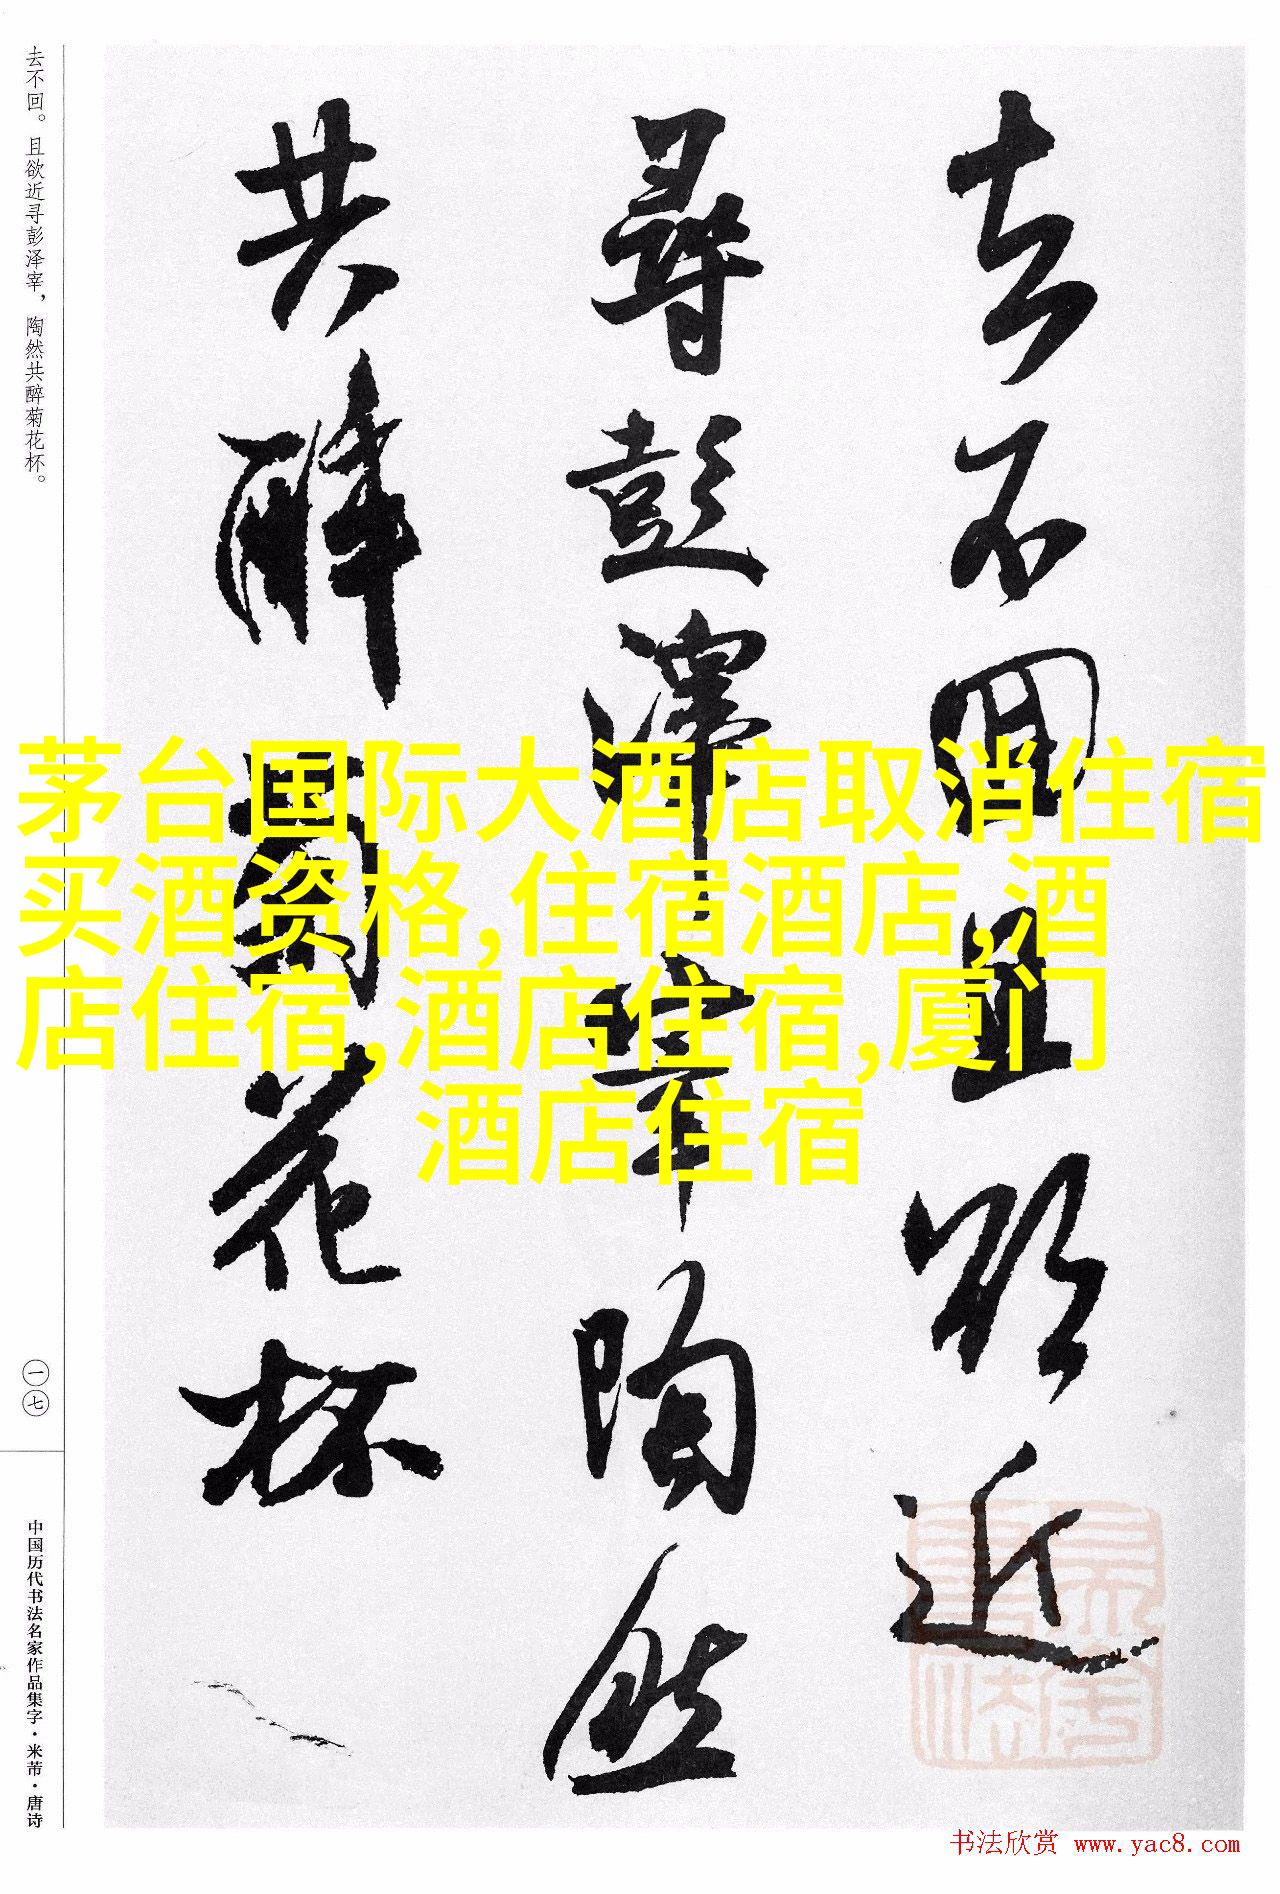 去不回且欲近
寻彭泽宰陶然
共醉菊花杯
去不回。且欲近寻彭泽宰，陶然共醉菊花杯。
一七
中国历代书法名家作品集字·米芾·唐诗
茅台国际大酒店取消住宿
买酒资格,住宿酒店,酒
店住宿,酒店住宿,厦门
酒店住宿
书法欣赏 www.yac8.com